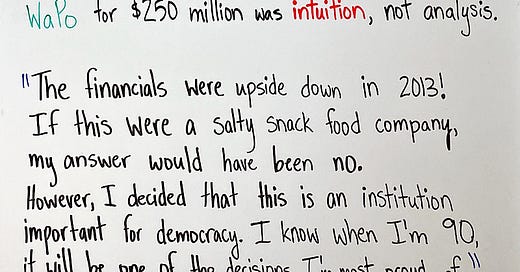 WaPo for $250 million was intuition, not analysis.
"The financials were upside down in 2013!
If this were a salty snack food company,
my answer would have been no.
However, I decided that this is an institution
important for democracy. I know when I'm 90,
it will be one of the decisions I'm most proud of"